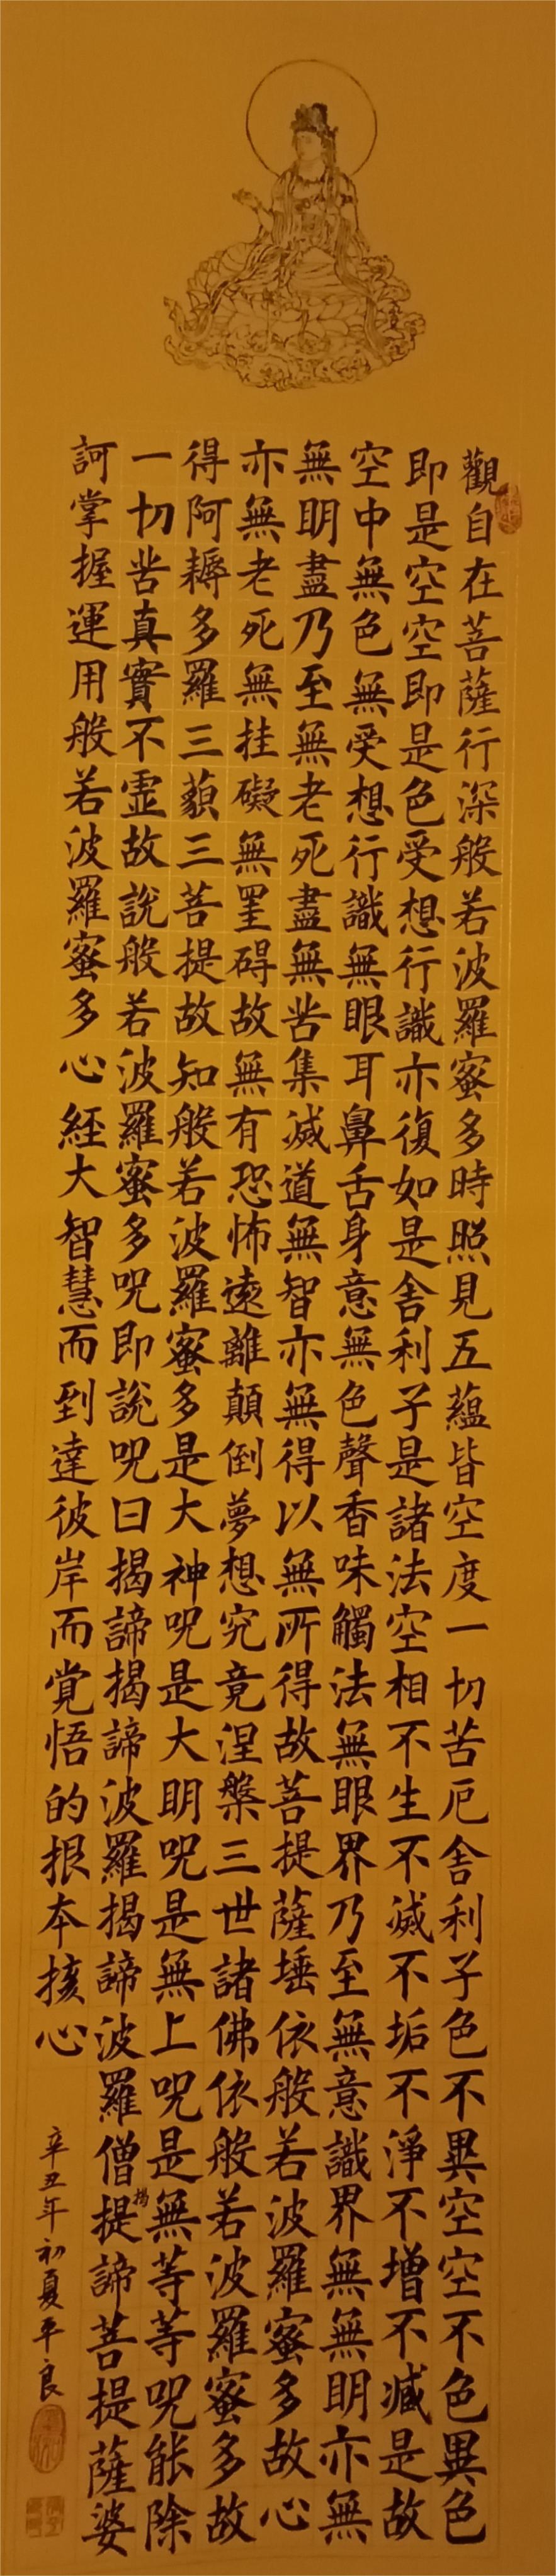 觀自在菩薩行深般若波羅蜜多時照見五蘊皆空度一切苦厄舍利子色不異空空不色異色
即是空空即是色受想行識亦復如是舍利子是諸法空相不生不滅不垢不淨不增不減是故
空中無色無受想行識無眼耳鼻舌身意無色聲香味觸法無眼界乃至無意識界無無明亦無
無明盡乃至無老死盡無苦集滅道無智亦無得以無所得故菩提薩埵依般若波羅蜜多故心
亦無老死無挂礙無罣碍故無有恐怖遠離顛倒夢想究竟涅槃三世諸佛依般若波羅蜜多故
得阿耨多羅三藐三菩提故知般若波羅蜜多是大神呪是大明呪是無上呪是無等等呪能除
一切苦真實不虛故說般若波羅蜜多呪即說呪曰揭諦揭諦波羅揭諦波羅僧提諦菩提薩婆
揭
訶掌握運用般若波羅蜜多心經大智慧而到達彼岸而覺悟的根本核心
辛丑年初夏平良